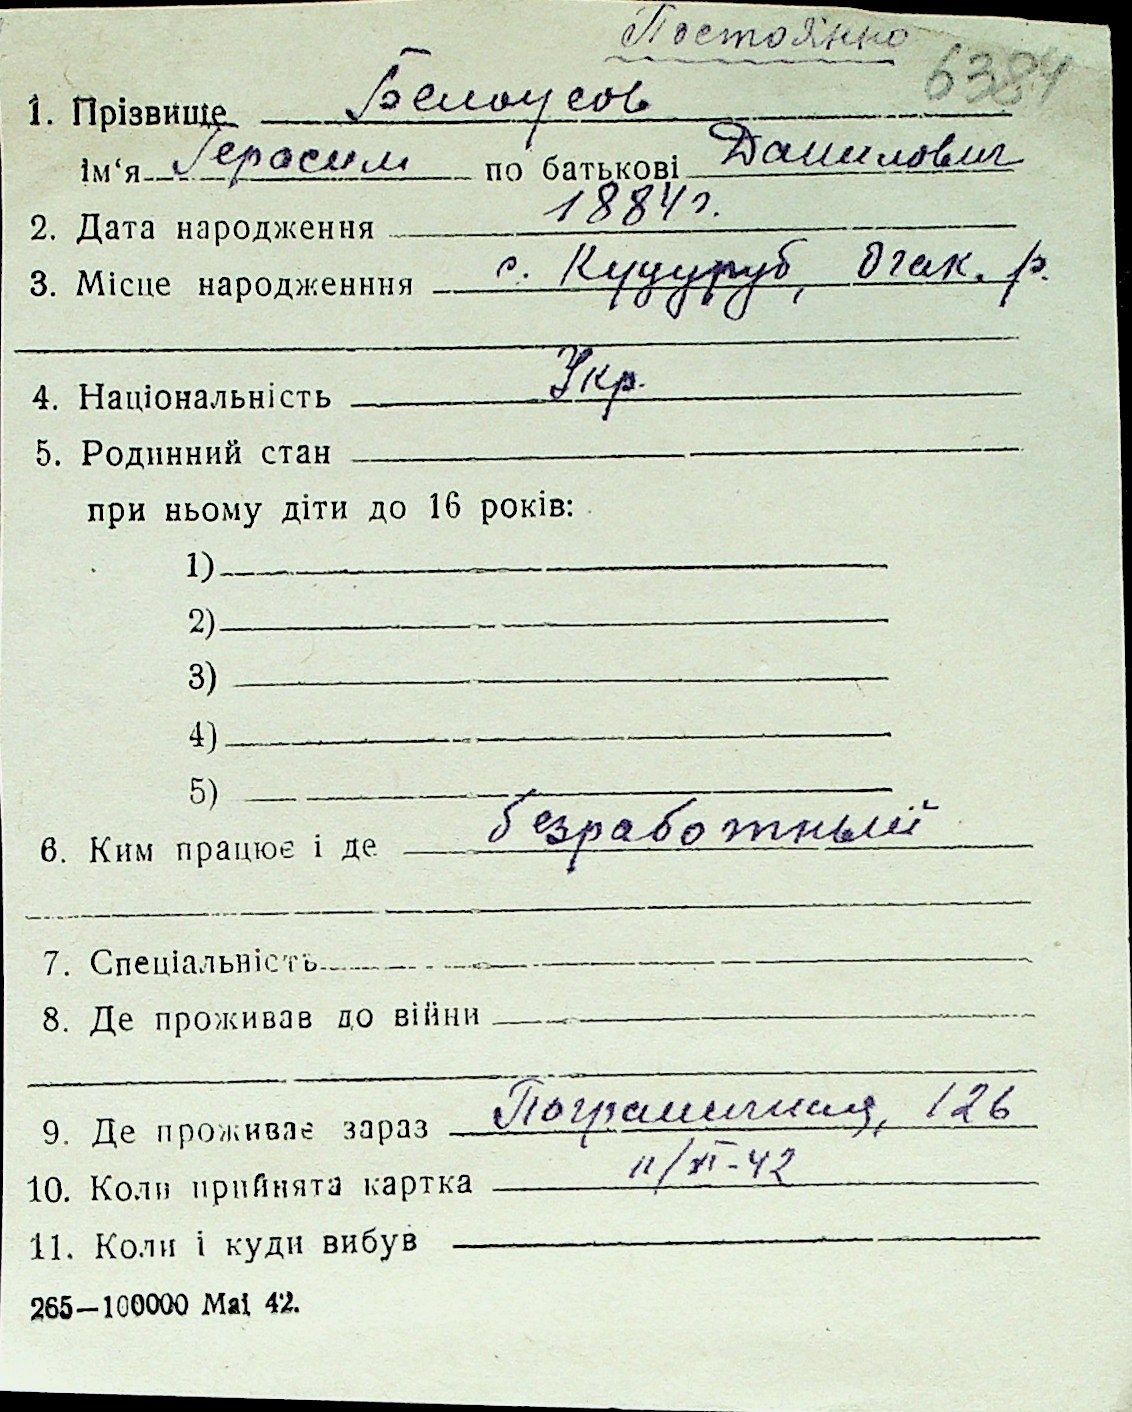 Постоянно
6384
1. Прізвище Белоусов
ім‘я Герасим по батькові Данилович
2. Дата народження 1884 г.
3. Місце народженння с. Куцуруб, Очак. р.
4. Національність Укр.
5. Родинний стан
при ньому діти до 16 років:
1)
2)
3)
4)
5)
6. Ким працює і де безработный
7. Спеціальність
8. Де проживав до війни
9. Де проживає зараз Пограничная, 126
10. Коли прийнята картка 11/XI-42
11. Коли і куди вибув
265—100000 Mai 42.